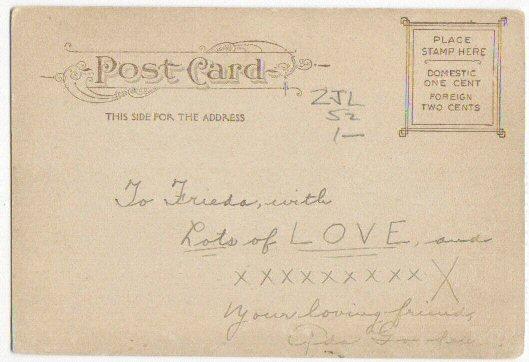 Post Card
THIS SIDE FOR THE ADDRESS
PLACE
STAMP HERE
DOMESTIC
ONE CENT
FOREIGN
TWO CENTS
ZJL
52
1—
To Frieda, with
Lots of LOVE, and
x x x x x x x x x X
Your loving friend,